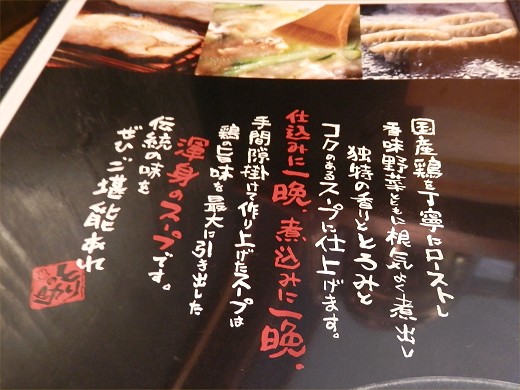 国産鶏を丁寧にローストし
香味野菜とともに根気よく煮出し
独特の香りととろみと
コクのあるスープに仕上げます。
仕込みに一晩、煮込みに一晩、
手間隙掛けて作り上げたスープは
鶏の旨味を最大に引き出した
渾身のスープです。
伝統の味を
ぜひご堪能あれ